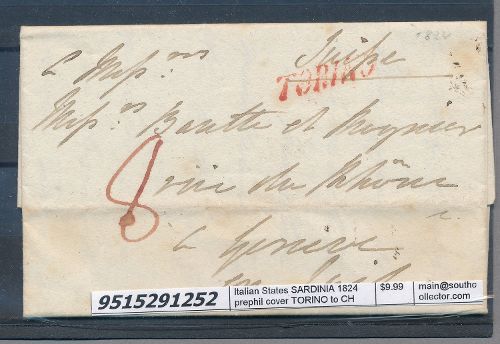 1824
a Mess.rs Suisse
TORINO
Mess.rs Bautte et Moynier
8 rue du Rhône
a Genève
en Suisse
9515291252
Italian States SARDINIA 1824
prephil cover TORINO to CH
$9.99
main@southc
ollector.com